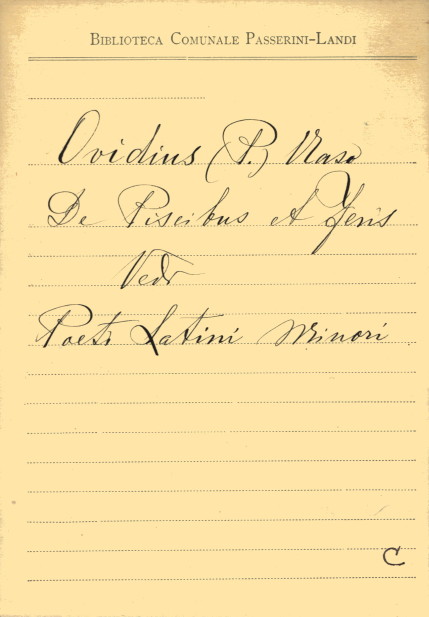 BIBLIOTECA COMUNALE PASSERINI-LANDI
Ovidius (P.) Naso
De Piscibus et Feris
Vedi
Poeti Latini Minori
C